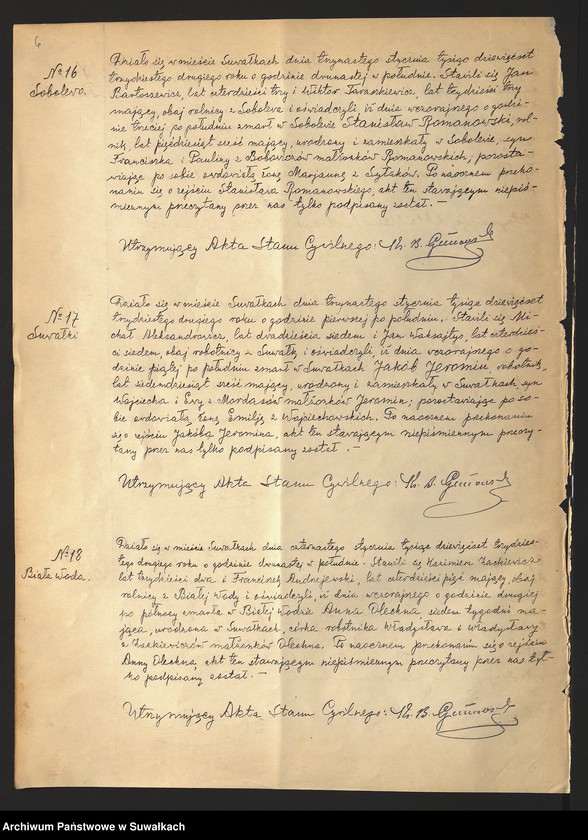 6
№ 16
Sobolewo.
Działo się w mieście Suwałkach dnia trzynastego stycznia tysiąc dziewięćset
trzydziestego drugiego roku o godzinie dwunastej w południe. Stawili się Jan
Bartoszewicz, lat czterdzieści trzy i Wiktor Taraszkiewicz, lat trzydzieści trzy
mający, obaj rolnicy z Sobolewa i oświadczyli, iż dnia wczorajszego o godzi-
nie trzeciej po południu zmarł w Sobolewie Stanisław Romanowski, rol-
nik, lat pięćdziesiąt sześć mający, urodzony i zamieszkały w Sobolewie, syn
Franciszka i Pauliny z małżonków Romanowskich; pozosta-
wiając po sobie owdowiałą żonę Marjannę z. Po naocznem przeko-
naniu się o zejściu Stanisława Romanowskiego, akt ten stawającym niepiś-
miennym przeczytany przez nas tylko podpisany został. —
Utrzymujący Akta Stanu Cywilnego: Ks. B.
№ 17
Suwałki
Działo się w mieście Suwałkach dnia trzynastego stycznia tysiąc dziewięćset
trzydziestego drugiego roku o godzinie pierwszej po południu. Stawili się Mi-
chał Aleksandrowicz, lat dwadzieścia siedem i Jan, lat czterdzieś-
ci siedem, obaj robotnicy z Suwałk i oświadczyli, iż dnia wczorajszego o go-
dzinie piątej po południu zmarł w Suwałkach Jakób Jeromin, robotnik,
lat siedemdziesiąt sześć mający, urodzony i zamieszkały w Suwałkach, syn
Wojciecha i Ewy z Mordasów małżonków Jeromin; pozostawiając po so-
bie owdowiałą żonę Emilję z Wojciechowskich. Po naocznem przekonaniu
się o zejściu Jakóba Jeromina, akt ten stawającym niepiśmiennym przeczy-
tany przez nas tylko podpisany został. —
Utrzymujący Akta Stanu Cywilnego: Ks. B.
№ 18
Biała Woda.
Działo się w mieście Suwałkach dnia czternastego stycznia tysiąc dziewięćset trzydzies-
tego drugiego roku o godzinie dwunastej w południe. Stawili się Kazimierz
lat trzydzieści dwa i Franciszek Andrzejewski, lat czterdzieści pięć mający, obaj
rolnicy z Białej Wody i oświadczyli, iż dnia wczorajszego o godzinie drugiej
po północy zmarła w Białej Wodzie Anna Olechna siedem tygodni ma-
jąca, urodzona w Suwałkach, córka robotnika Władysława i Władysławy
z małżonków Olechna. Po naocznem przekonaniu się o zejściu
Anny Olechna, akt ten stawającym niepiśmiennym przeczytany przez nas tyl-
ko podpisany został. —
Utrzymujący Akta Stanu Cywilnego: Ks. B.
Archiwum Państwowe w Suwałkach